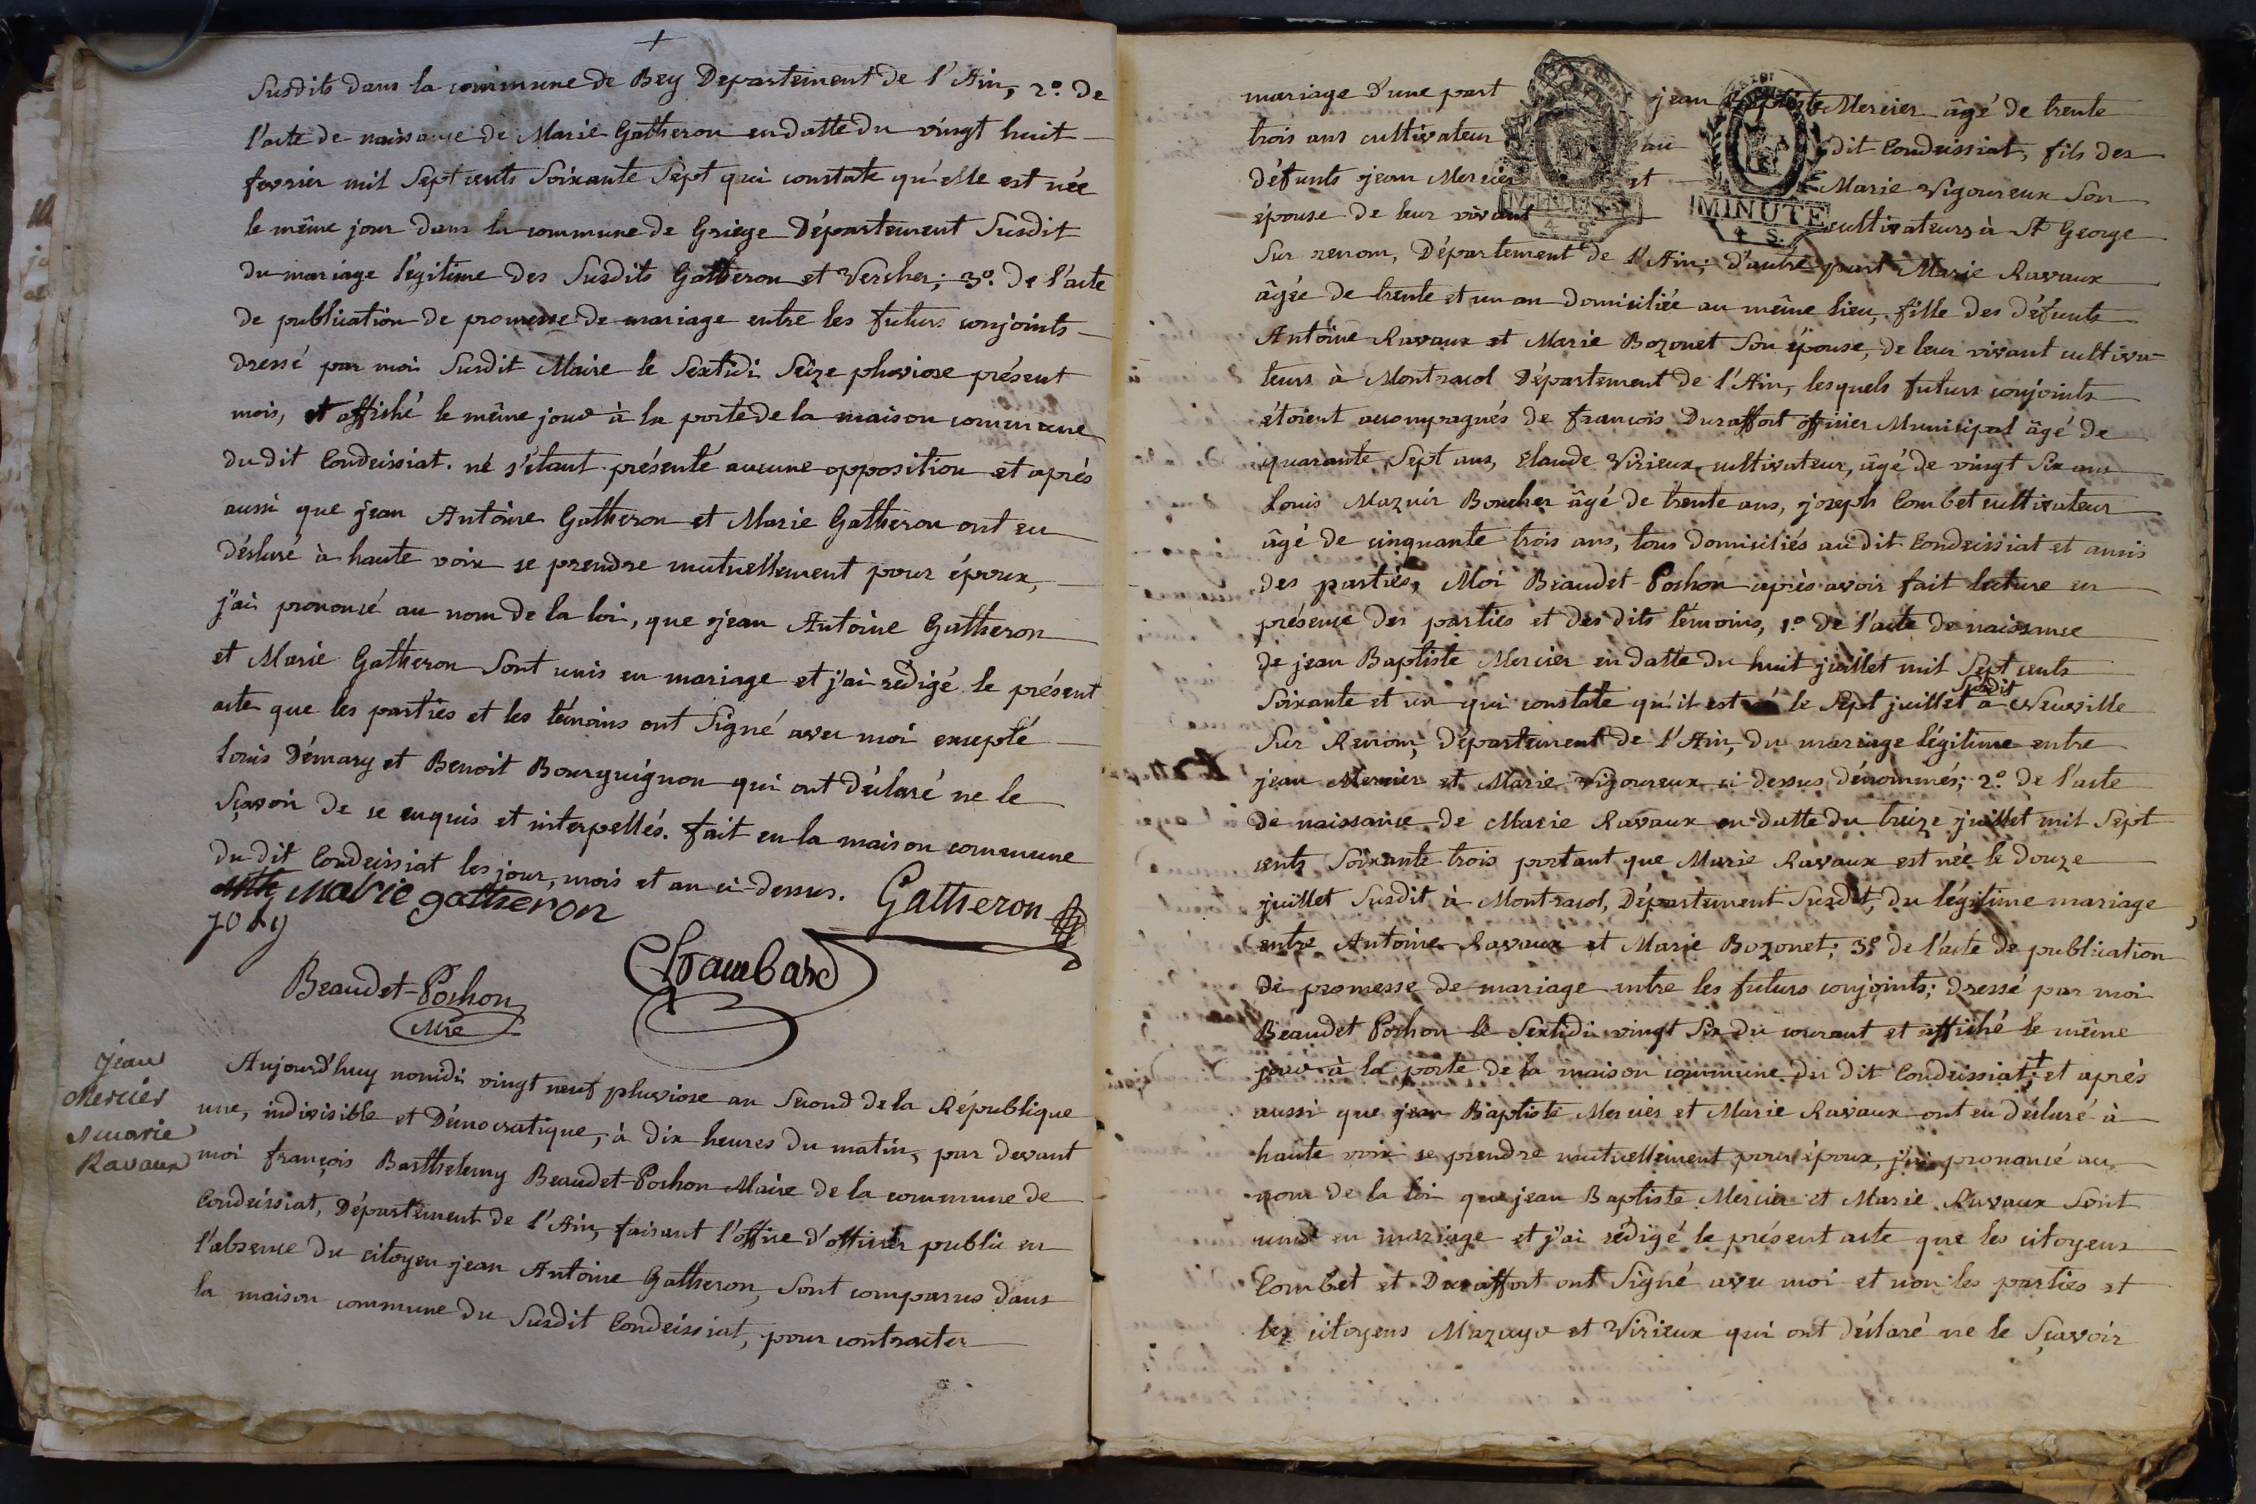 Susdits dans la commune de Bey Departement de l'Ain, 2.º de
l'acte de naissance de Marie Gatheron en datte du vingt huit
fevrier mil Sept cents Soixante Sept qui constate qu'elle est née
le même jour dans la commune de Griège Département Susdit
du mariage légitime des Susdits Gatheron et Vercher; 3.º de l'acte
de publication de promesse de mariage entre les futurs conjoints
dressé par moi Susdit Maire le Sextidi Seize pluviose présent
mois, et affiché le même jour à la porte de la maison commune
du dit Condeissiat. ne s'étant présenté aucune opposition et après
aussi que jean Antoine Gatheron et Marie Gatheron ont eu
déclaré à haute voix se prendre mutuellement pour époux,
j'ai prononcé au nom de la loi, que jean Antoine Gatheron
et Marie Gatheron Sont unis en mariage et j'ai rédigé le présent
acte que les parties et les témoins ont Signé avec moi excepté
louis Démary et Benoit Bourguignon qui ont déclaré ne le
Sçavoir de ce enquis et interpellés. fait en la maison commune
du dit Condeissiat les jour, mois et an ci-dessus. Gatheron
marie gatheron
joly
Chambard
Beaudet-Pochon
Mre
jean
Mercier
marie
Ravaux
Aujourd'huy nonidi vingt neuf pluviose an Second de la République
une, indivisible et Démocratique, à dix heures du matin, par devant
moi françois Barthelemy Beaudet-Pochon Maire de la commune de
Condeissiat, Département de l'Ain, faisant l'office d'officier public en
l'absence du citoyen jean Antoine Gatheron, Sont comparus dans
la maison commune du Susdit Condeissiat, pour contracter
mariage d'une part jean Baptiste Mercier âgé de trente
trois ans cultivateur au dit Condeissiat, fils des
défunts jean Mercier et Marie Vigoureux Son
épouse de leur vivant cultivateurs à St George
MINUTE
4 S.
MINUTE
4 S.
Sur renom, Département de l'Ain; d'autre part Marie Ravaux
âgée de trente et un an domiciliée au même lieu, fille des défunts
Antoine Ravaux et Marie Bozonet Son épouse, de leur vivant cultiva-
teurs à Montracol Département de l'Ain, lesquels futurs conjoints
étoient accompagnés de françois Duraffort officier Municipal âgé de
quarante Sept ans, Claude Virieux cultivateur, âgé de vingt Six ans
louis Mazuir Boucher âgé de trente ans, joseph Combet cultivateur
âgé de cinquante trois ans, tous domiciliés au dit Condeissiat et amis
des parties, Moi Beaudet-Pochon après avoir fait lecture en
présence des parties et des dits témoins, 1.º de l'acte de naissance
de jean Baptiste Mercier en datte du huit juillet mil Sept cents
Soixante et un qui constate qu'il est né le Sept juillet Susdit à Neuville
Sur Renom, Département de l'Ain, du mariage légitime entre
jean Mercier et Marie Vigoureux ci dessus dénommés; 2.º de l'acte
de naissance de Marie Ravaux en datte du treize juillet mil Sept
cents Soixante trois portant que Marie Ravaux est née le douze
juillet Susdit à Montracol, Département Susdit, du légitime mariage
entre Antoine Ravaux et Marie Bozonet; 3.º de l'acte de publication
de promesse de mariage entre les futurs conjoints; dressé par moi
Beaudet Pochon le Sextidi vingt Six du courant et affiché le même
jour à la porte de la maison commune du dit Condeissiat, + et après
aussi que jean Baptiste Mercier et Marie Ravaux ont eu déclaré à
haute voix se prendre mutuellement pour époux, j'ai prononcé au
nom de la loi que jean Baptiste Mercier et Marie Ravaux Sont
unis en mariage et j'ai rédigé le présent acte que les citoyens
Combet et Duraffort ont Signé avec moi et non les parties et
les citoyens Mazuyr et Virieux qui ont déclaré ne le Sçavoir